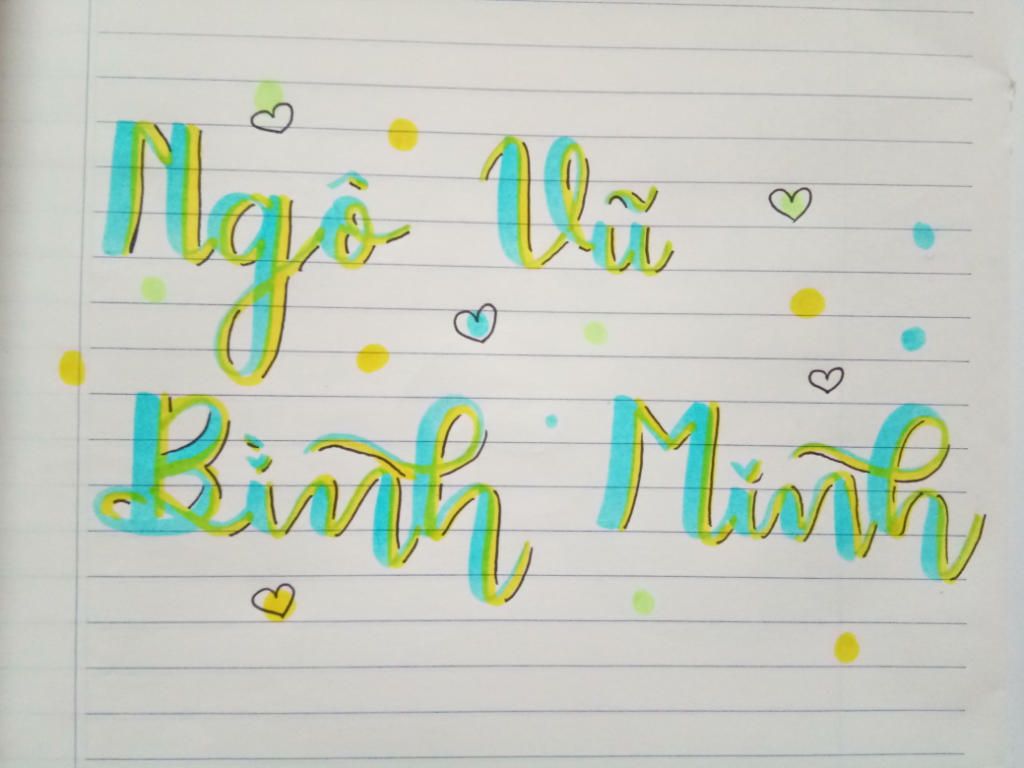 Ngô Vũ
Bình Minh